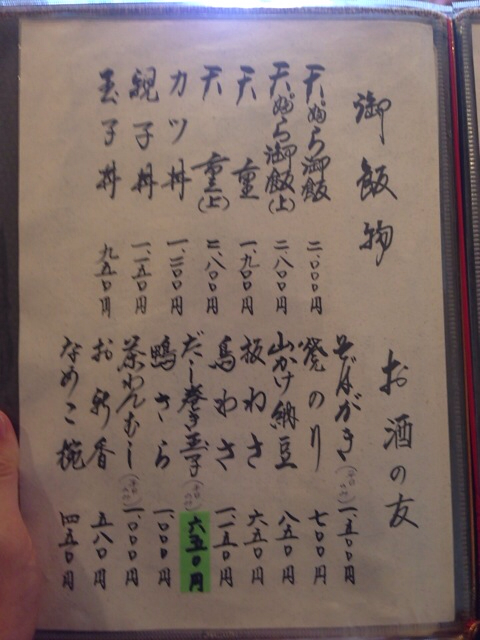 御飯物
天ぷら御飯 二、〇〇〇円
天ぷら御飯(上) 二、八〇〇円
天重 一、九〇〇円
天重(上) 二、八〇〇円
カツ丼 一、二〇〇円
親子丼 一、一五〇円
玉子丼 九五〇円
お酒の友
そばがき 一、五〇〇円
焼のり 七〇〇円
山かけ納豆 八五〇円
板わさ 六五〇円
鳥わさ 一、一五〇円
だし巻き玉子 六五〇円
鴨さら 一、〇〇〇円
茶わんむし 一、〇〇〇円
お新香 五八〇円
なめこ椀 四五〇円